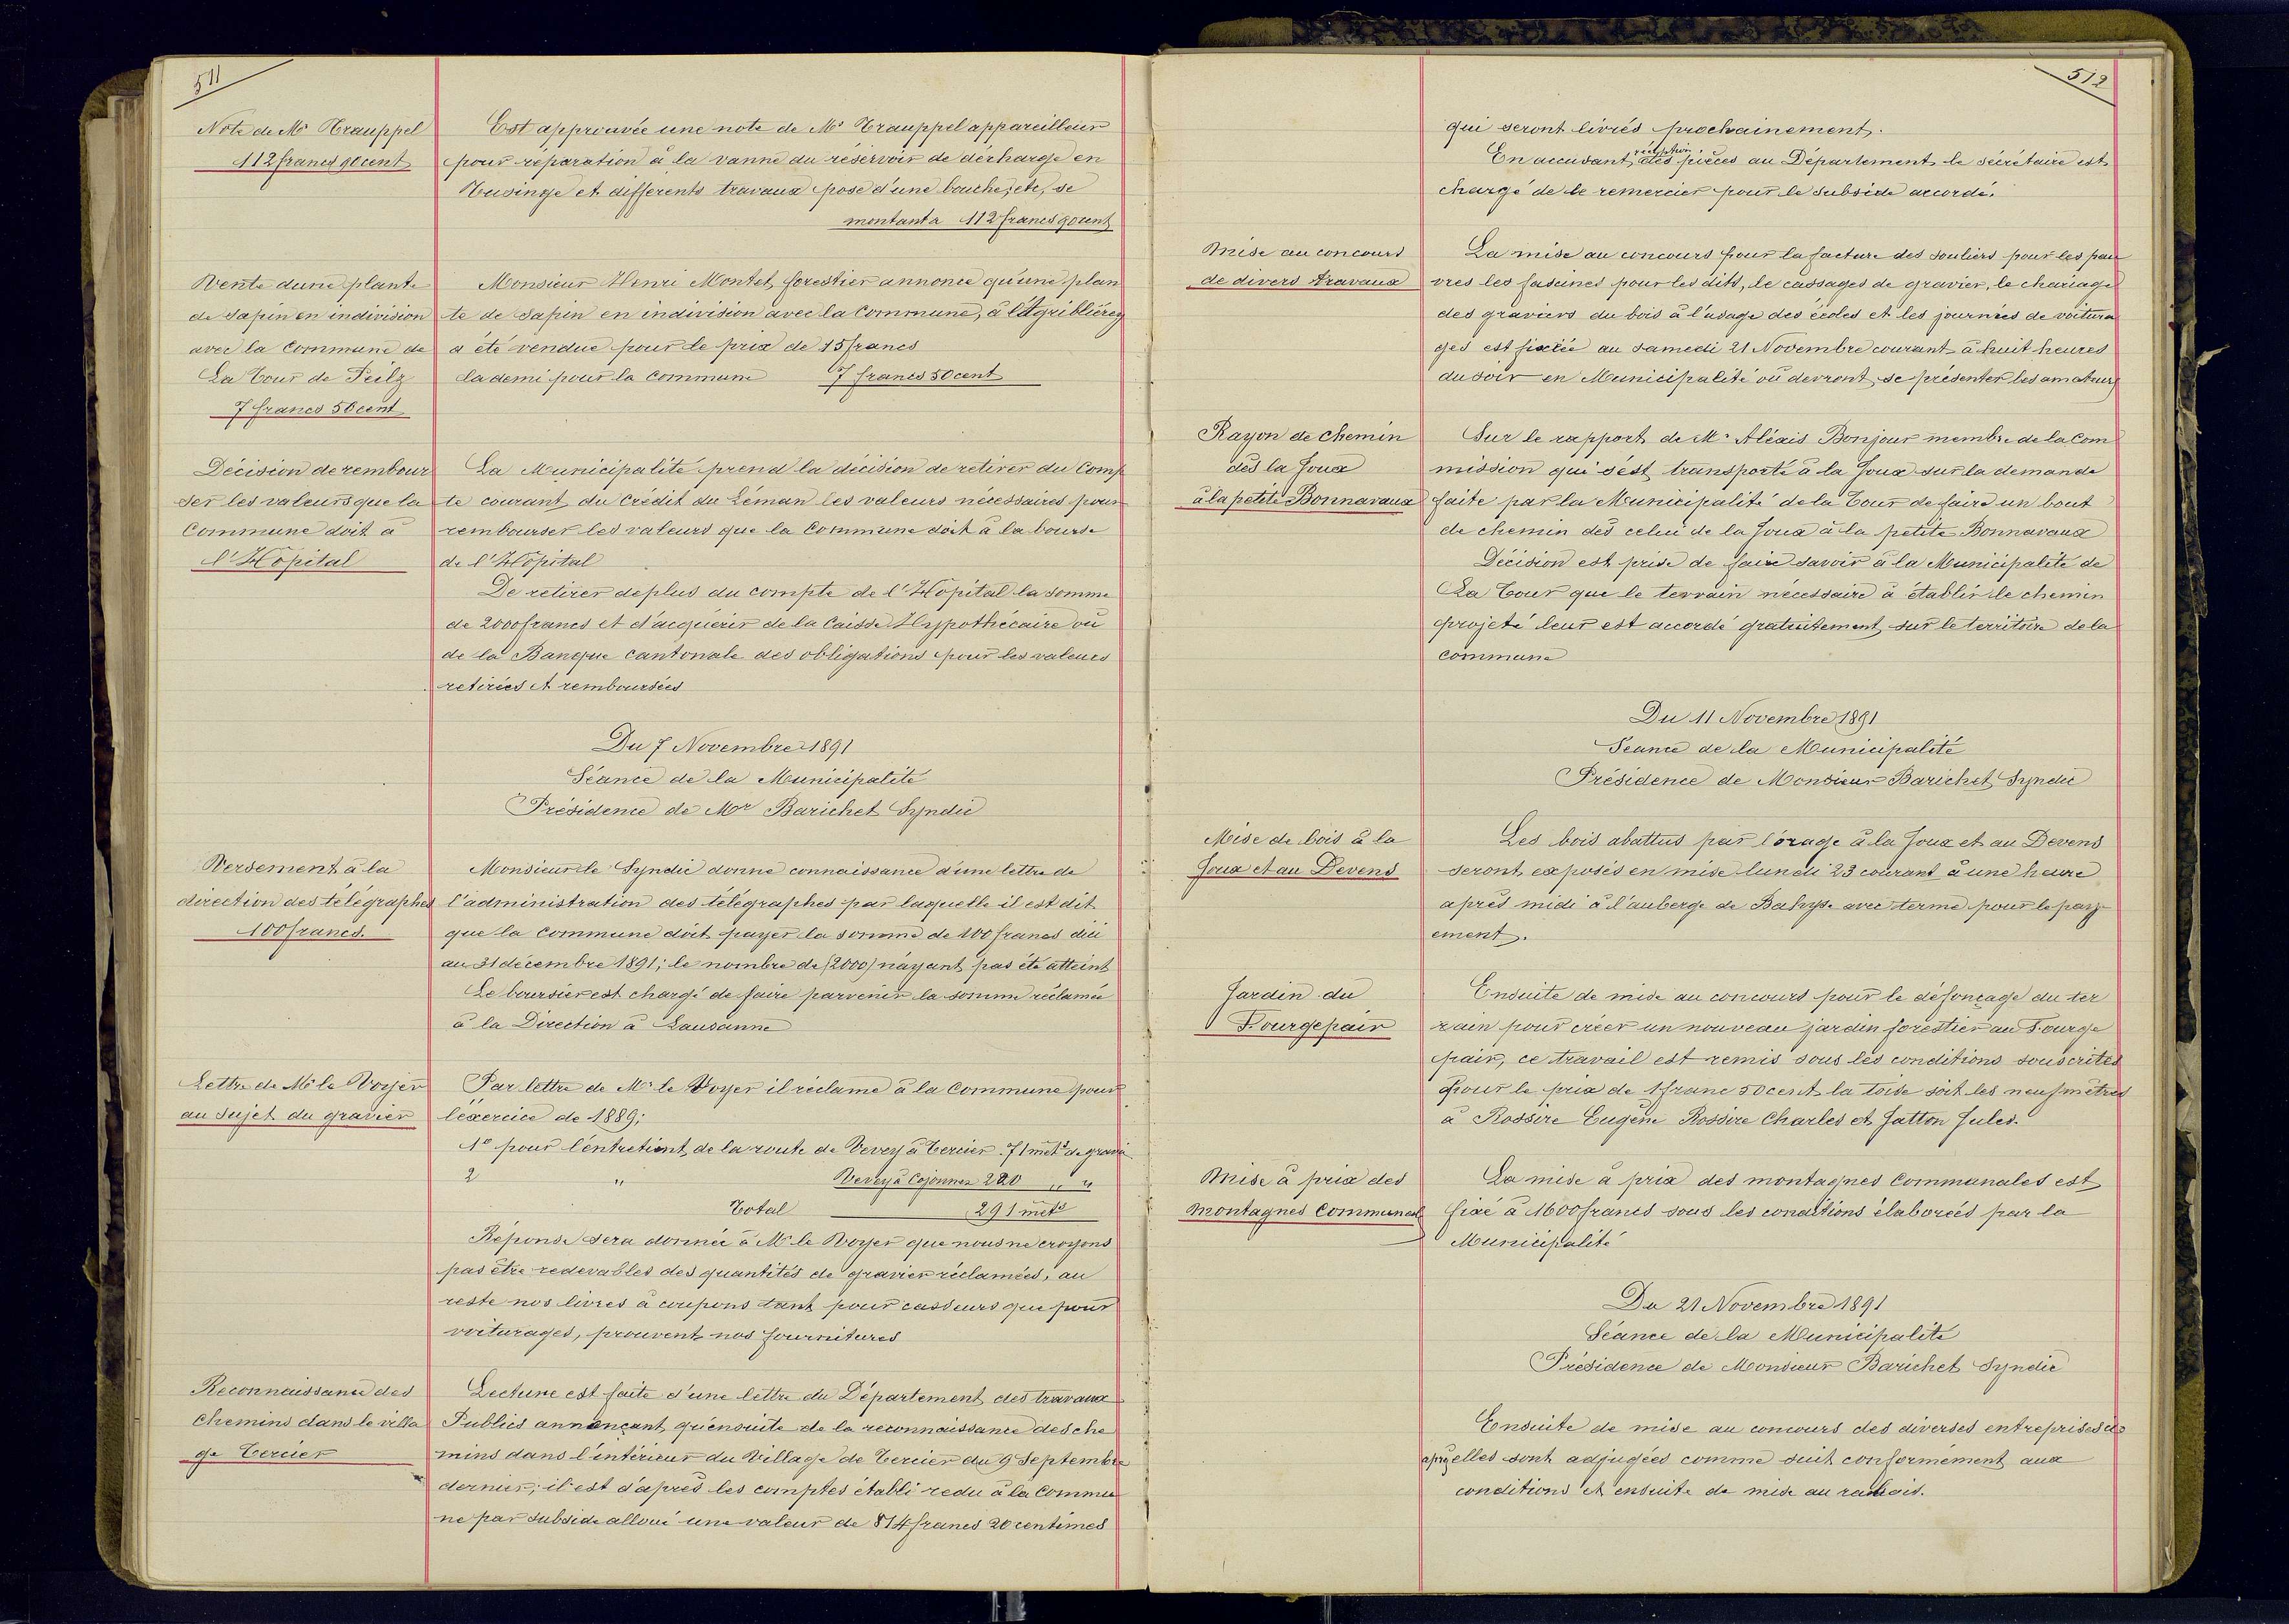 511
Note de Mr Trauppel
112 francs 90 cent
Est approuvée une note de Mr Trauppel appareilleur
pour réparation à la vanne du réservoir de décharge en
Tusinge et differents travaux pose d'une bouche, etc, se
montant a 112 francs 90 cent
Vente dune plante
de sapin en indivision
avec la Commune de
La Tour de Peilz
7 francs 50 cent
Monsieur Henri Montet forestier annonce qu'une plan
te de sapin en indivision avec la Commune, à
a été vendue pour le prix de 15 francs
la demi pour la commune 7 francs 50 cent
Décision de rembour
ser les valeurs que la
Commune doit à
l'Hôpital
La Municipalité prend la décision de retirer du Comp
te courant du Crédit du Léman les valeurs nécessaires pour
rembourser les valeurs que la Commune doit à la bourse
de l'Hôpital
De retirer deplus du compte de l'Hôpital la somme
de 2000 francs et d'acquérir de la Caisse Hyppothécaire ou
de la Banque cantonale des obligations pour les valeurs
retirées et remboursées
Du 7 Novembre 1891
Séance de la Municipalité
Présidence de Mr Barichet Syndic
Versement à la
direction des télégraphes
100 francs.
Monsieur le Syndic donne connaissance d'une lettre de
l'administration des télégraphes par laquelle il est dit
que la Commune doit payer la somme de 100 francs dici
au 31 décembre 1891; le nombre de (2000) n'ayant pas été atteint
Le boursier est chargé de faire parvenir la somme réclamée
à la Direction à Lausanne
Lettre de Mr le Voyer
au sujet du gravier
Par lettre de Mr le Voyer il réclame à la Commune pour
l'exercice de 1889;
1° pour l'entretient de la route de Vevey à Tercier 71 metr de gravie
2 " Vevey à Cojonnex 220 " "
Total 291 met
Réponse sera donnée à Mr le Voyer que nous ne croyons
pas être redevables des quantités de gravier réclamées, au
reste nos livres à coupons tant pour casseurs que pour
voiturages, prouvent nos fournitures
Reconnaissance des
Chemins dans le villa
ge Tercier
Lecture est faite d'une lettre du Département des travaux
Publics annonçant qu'ensuite de la reconnaissance des che
mins dans l'intérieur du Village de Tercier du 9 Septembre
dernier; il est d'après les comptes établi redu à la Commu
ne par subside alloué une valeur de 814 francs 20 centimes
512
qui seront livrés prochainement.
réception
En accusant des pièces au Département le secrétaire est
chargé de le remercier pour le subside accordé.
Mise au concours
de divers travaux
La mise au concours pour la facture des souliers pour les pau
vres les fascines pour les dits, le cassages de gravier, le chariage
des graviers du bois à l'usage des écoles et les journées de voitura
ges est fixée au samedi 21 Novembre courant à huit heures
du soir en Municipalité où devront se présenter les amateurs
Rayon de chemin
dès la Joux
à la petite Bonnavaux
Sur le rapport de Mr Aléxis Bonjour membre de la Com
mission qui s'est transporté à la Joux sur la demande
faite par la Municipalité de la Tour de faire un bout
de chemin dès celui de la Joux à la petite Bonnavaux
Décision est prise de faire savoir à la Municipalité de
La Tour que le terrain nécessaire à établir le chemin
projeté leur est accordé gratuitement sur le territoire de la
commune
Du 11 Novembre 1891
Séance de la Municipalité
Présidence de Monsieur Barichet Syndic
Mise de bois à la
Joux et au Devens
Les bois abattus par l'orage à la Joux et au Devens
seront exposés en mise lundi 23 courant à une heure
après midi à l'auberge de avec terme pour le pay
ement.
Jardin du
Fourgepair
Ensuite de mise au concours pour le défonçage du ter
rain pour créer un nouveau jardin forestier au Fourge
pair, ce travail est remis sous les conditions souscrites
pour le prix de 1 franc 50 cent la toise soit les neuf mètres
à Rossire Eugène Rossire Charles et Jatton Jules.
Mise à prix des
Montagnes Communal
La mise à prix des montagnes Communales est
fixé à 1600 francs sous les conditions élaborées par la
Municipalité
Du 21 Novembre 1891
Séance de la Municipalité
Présidence de Monsieur Barichet Syndic
Ensuite de mise au concours des diverses entreprises ci
après elles sont adjugées comme suit conformément aux
conditions et ensuite de mise au rabais.